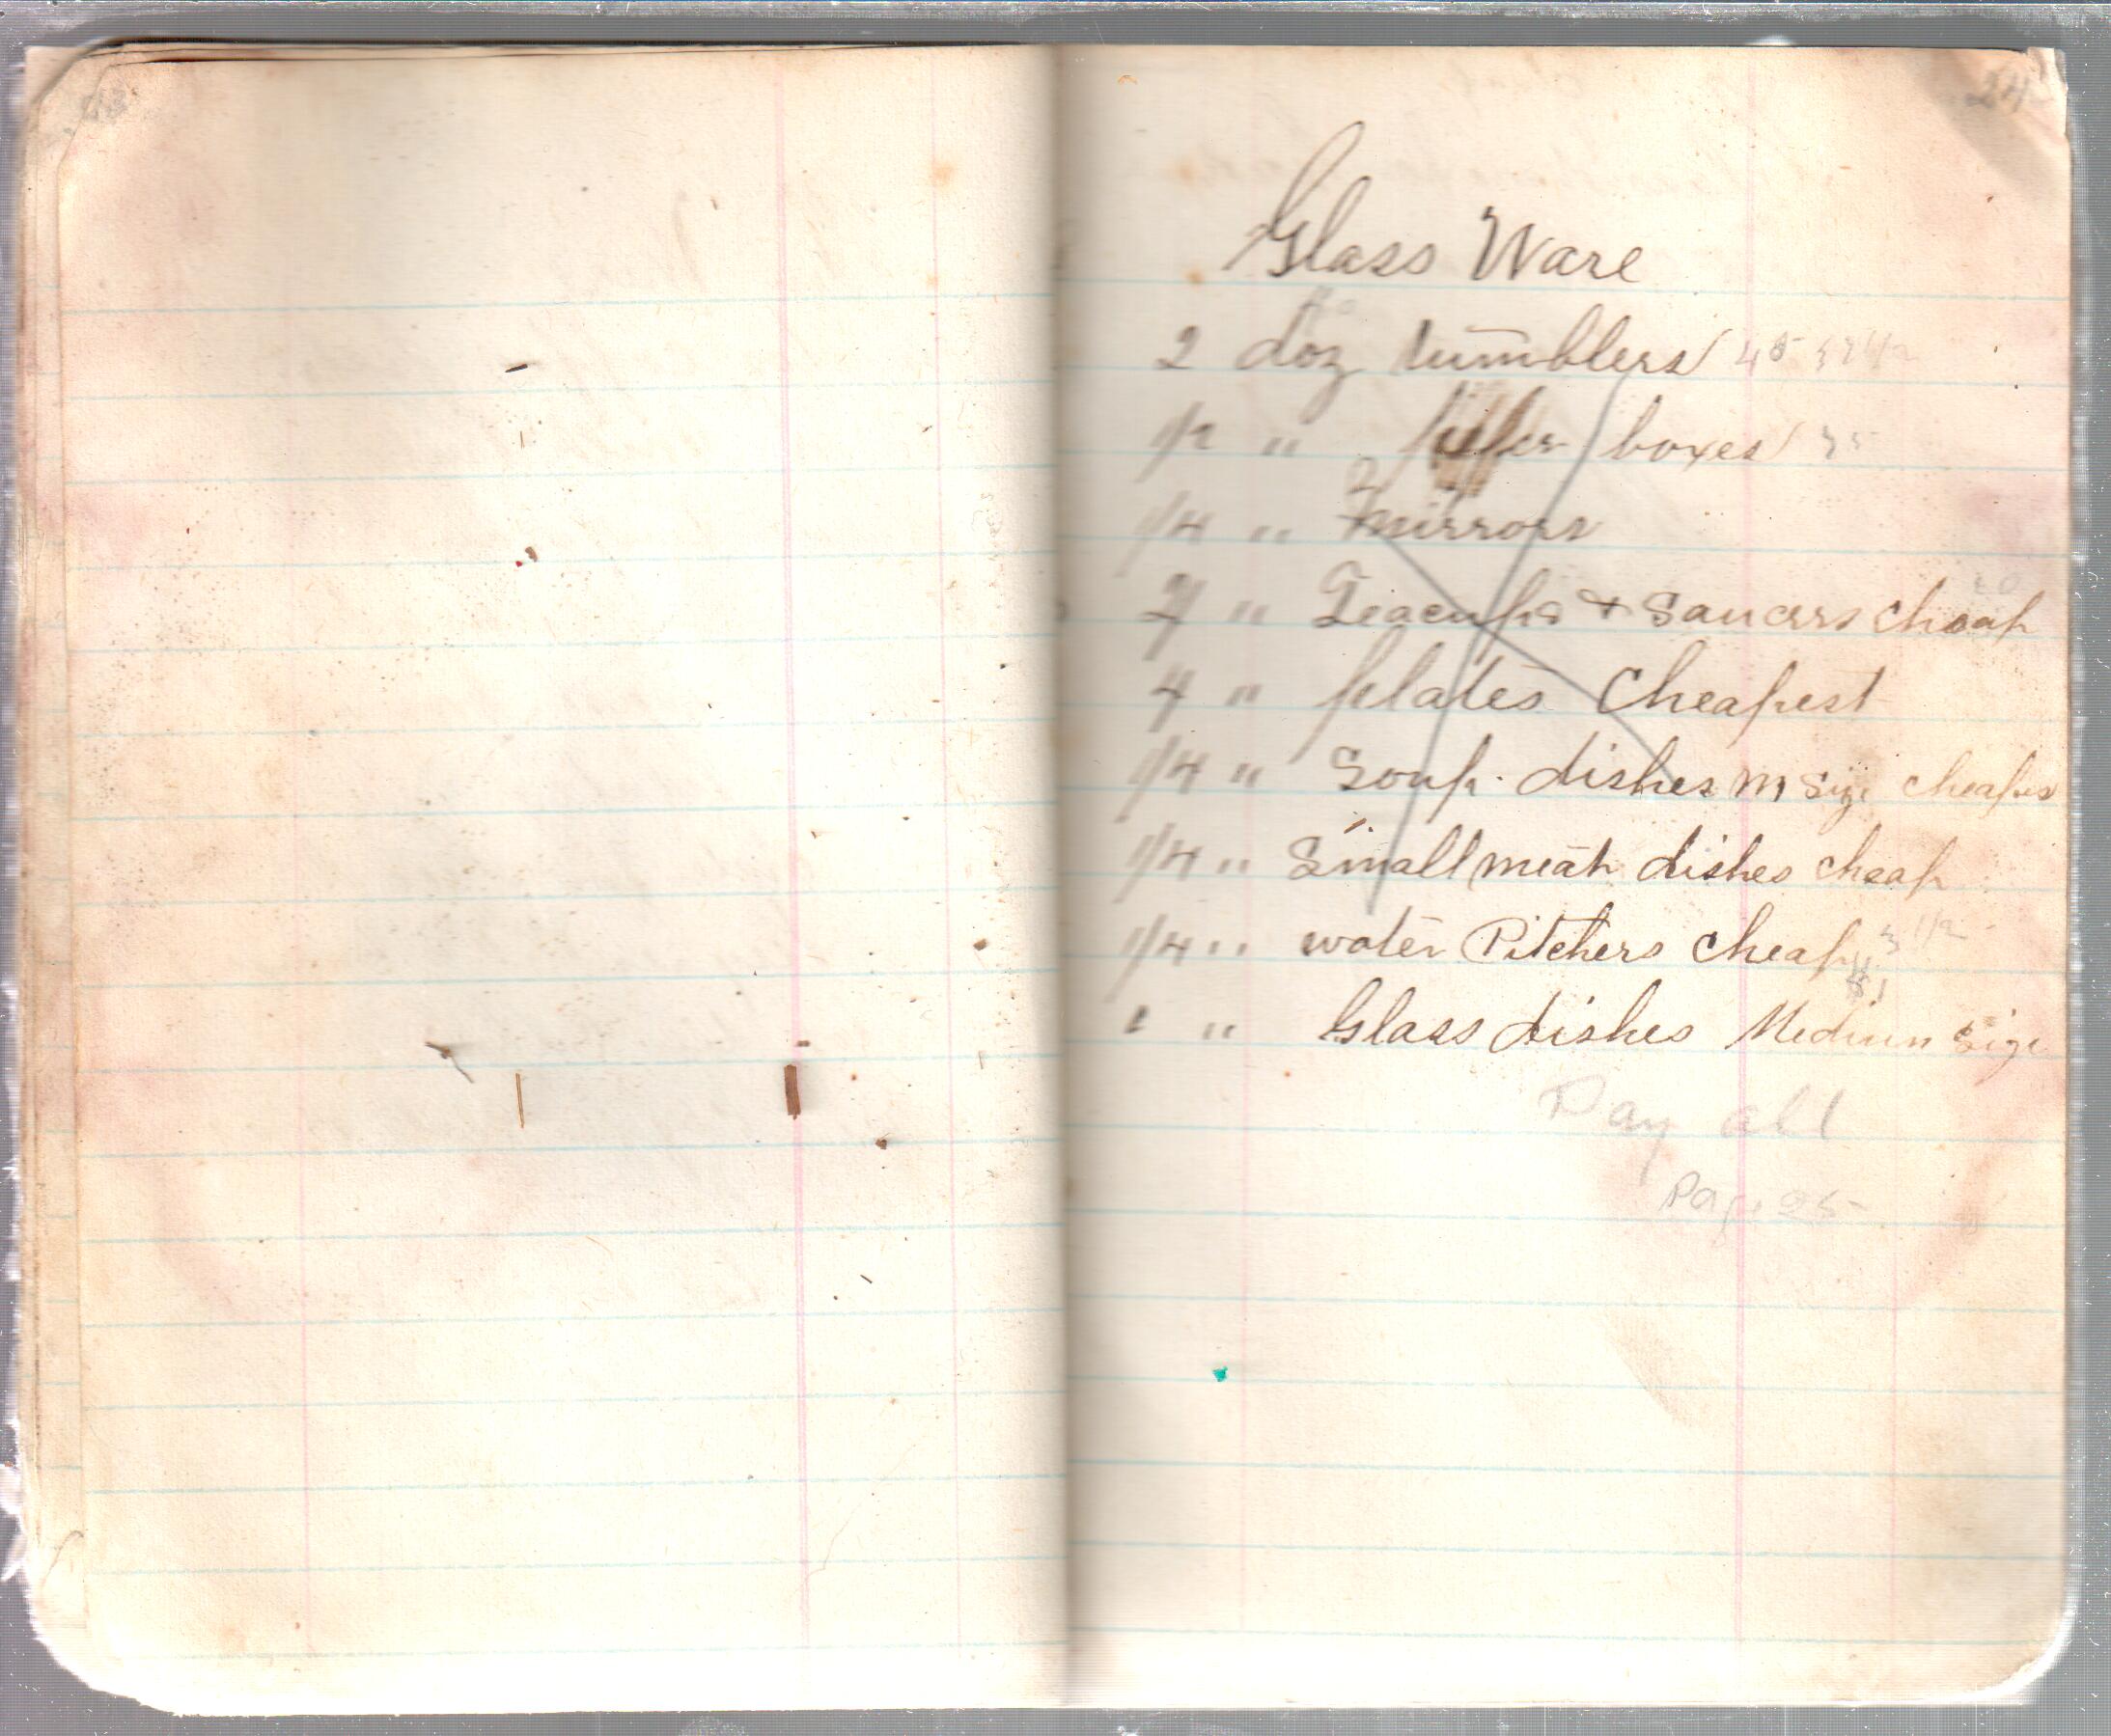 24
Glass Ware
2 doz tumblers 45
1/2 " boxes 35
1/4 " mirrors
2 " Teacups & Saucers cheap
4 " plates Cheapest
1/4 " Soup dishes M Size cheapes
1/4 " Small meat dishes cheap
1/4 " water Pitchers cheap 3 1/2
1 " Glass dishes Medium Size
Pay all
Page 25